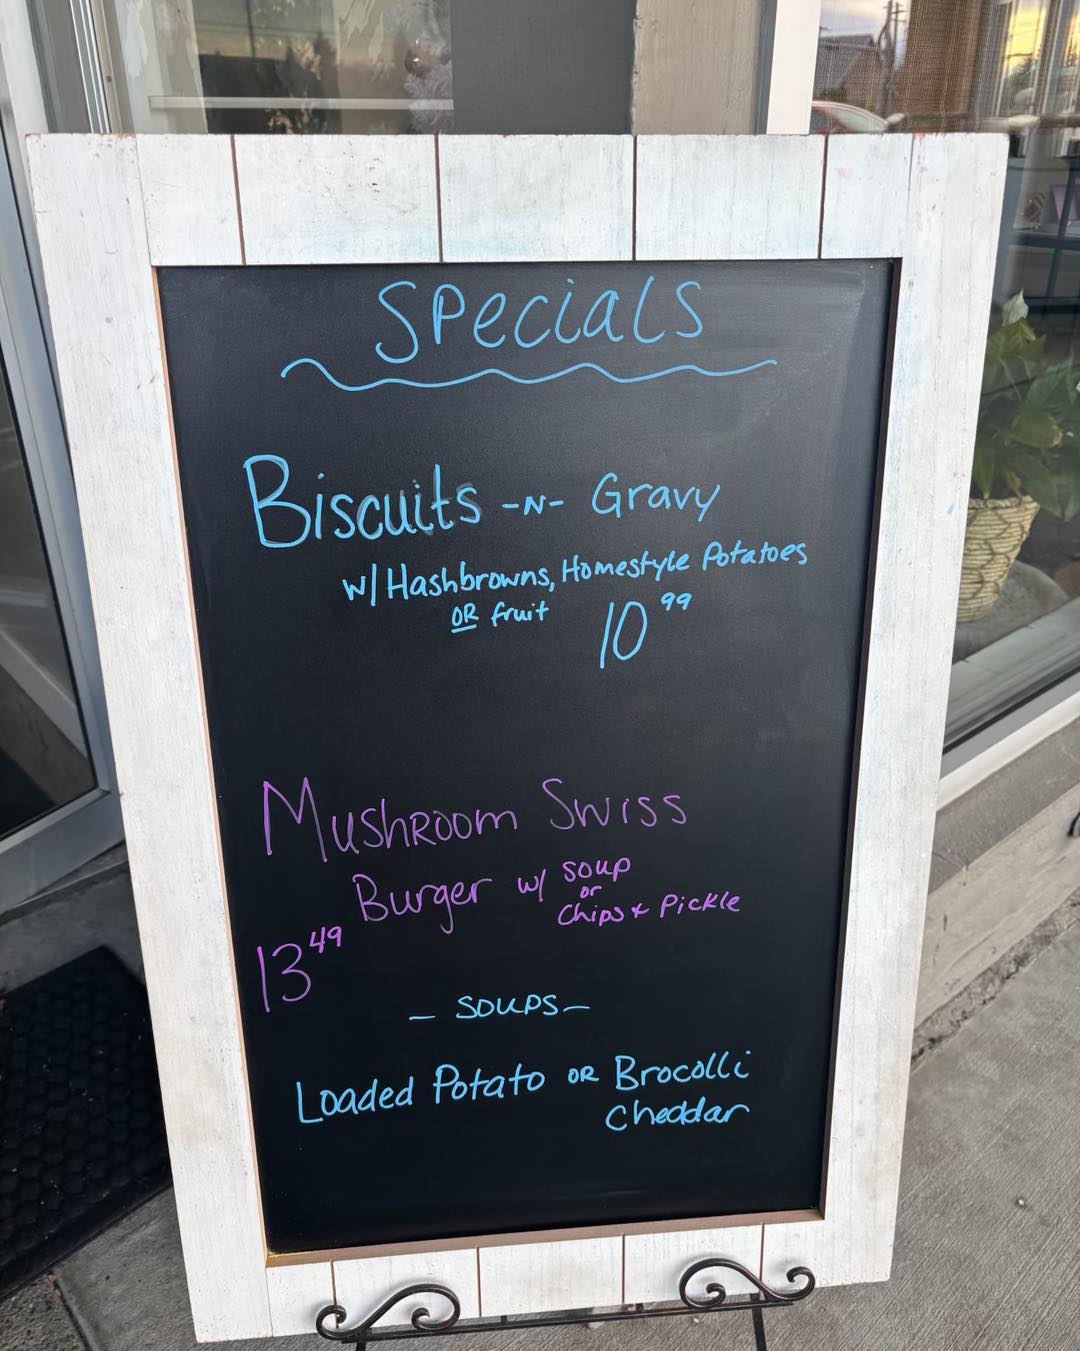 Specials
Biscuits -N- Gravy
w/ Hashbrowns, Homestyle Potatoes
OR fruit 10 99
Mushroom Swiss
Burger w/ soup
or
Chips & Pickle
13 49
- Soups -
Loaded Potato OR Brocolli
Cheddar